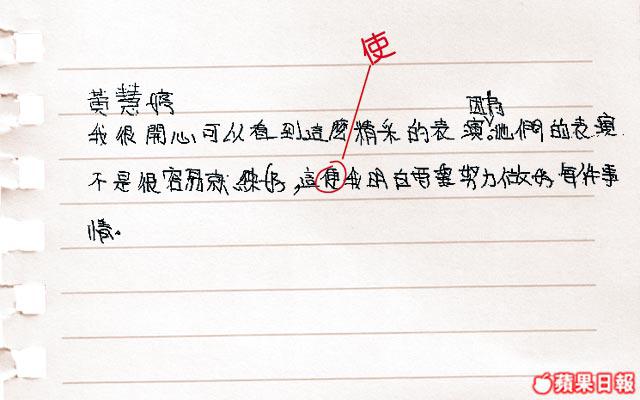 使
黃慧婷
因為
我很開心可以看到這麼精采的表演。他們的表演
不是很容易就練好,這便我明白需要努力做好每件事
情。
蘋果日報